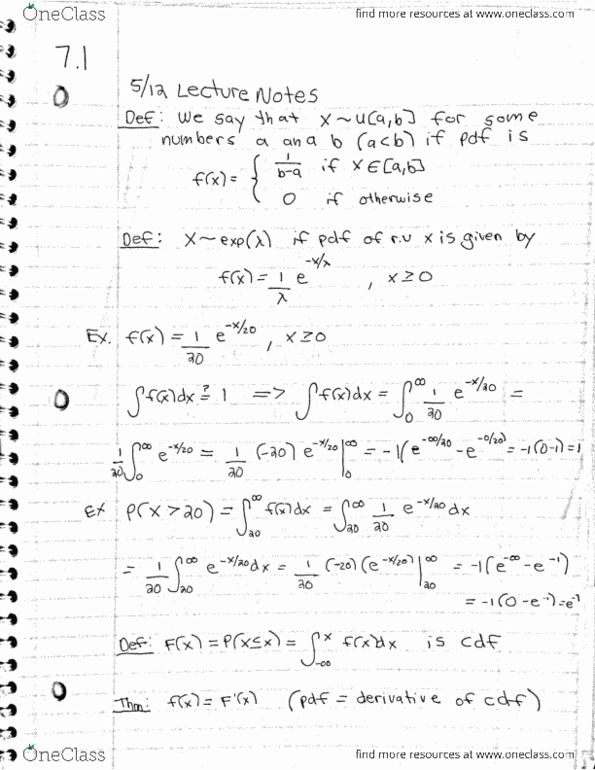 OneClass
find more resources at www.oneclass.com
7.1
5/12 Lecture Notes
Def: We say that X~U[a,b] for some
numbers a and b (a<b) if pdf is
f(x) = { 1/(b-a) if x∈[a,b]
0 if otherwise
Def: X~exp(λ) if pdf of r.v X is given by
f(x) = 1/λ e^(-x/λ) , x≥0
Ex. f(x) = 1/20 e^(-x/20) , x≥0
∫f(x)dx ?= 1 => ∫f(x)dx = ∫_0^∞ 1/20 e^(-x/20) =
1/20 ∫_0^∞ e^(-x/20) = 1/20 (-20) e^(-x/20) |_0^∞ = -1(e^(-∞/20) - e^(-0/20)) = -1(0-1) = 1
Ex P(X>20) = ∫_20^∞ f(x)dx = ∫_20^∞ 1/20 e^(-x/20) dx
= 1/20 ∫_20^∞ e^(-x/20) dx = 1/20 (-20)(e^(-x/20)) |_20^∞ = -1(e^(-∞) - e^(-1))
= -1(0-e^(-1)) = e^(-1)
Def: F(x) = P(X≤x) = ∫_(-∞)^x f(x)dx is cdf
Thm: f(x) = F'(x) (pdf = derivative of cdf)
OneClass
find more resources at www.oneclass.com